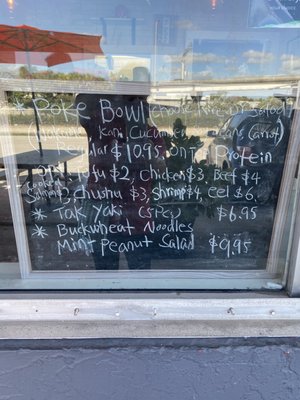 * Poke Bowl Rice or Salad
Kani, Cucumber, Carrot)
Regular $10.95. Protein
Tofu $2, Chicken $3, Beef $4
Chashu $3, Shrimp $4, eel $6.
* Tak Yaki (5pcs) $6.95
* Buckwheat Noodles
Mint Peanut Salad $9.95